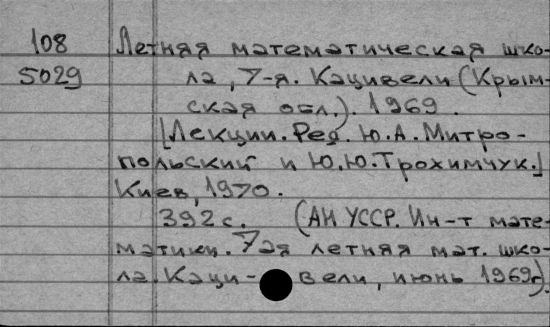 108 Летняя математическая шко-
5029 ла, 7-я. Кацивели (Крым-
ская обл.). 1969.
[Лекции. Ред. Ю.А. Митро-
польский и Ю.Ю. Трохимчук.]
Киев, 1970.
392 с. (АН УССР. Ин-т мате-
матики. 7ая летняя мат. шко-
ла. Каци- вели, июнь 1969г).